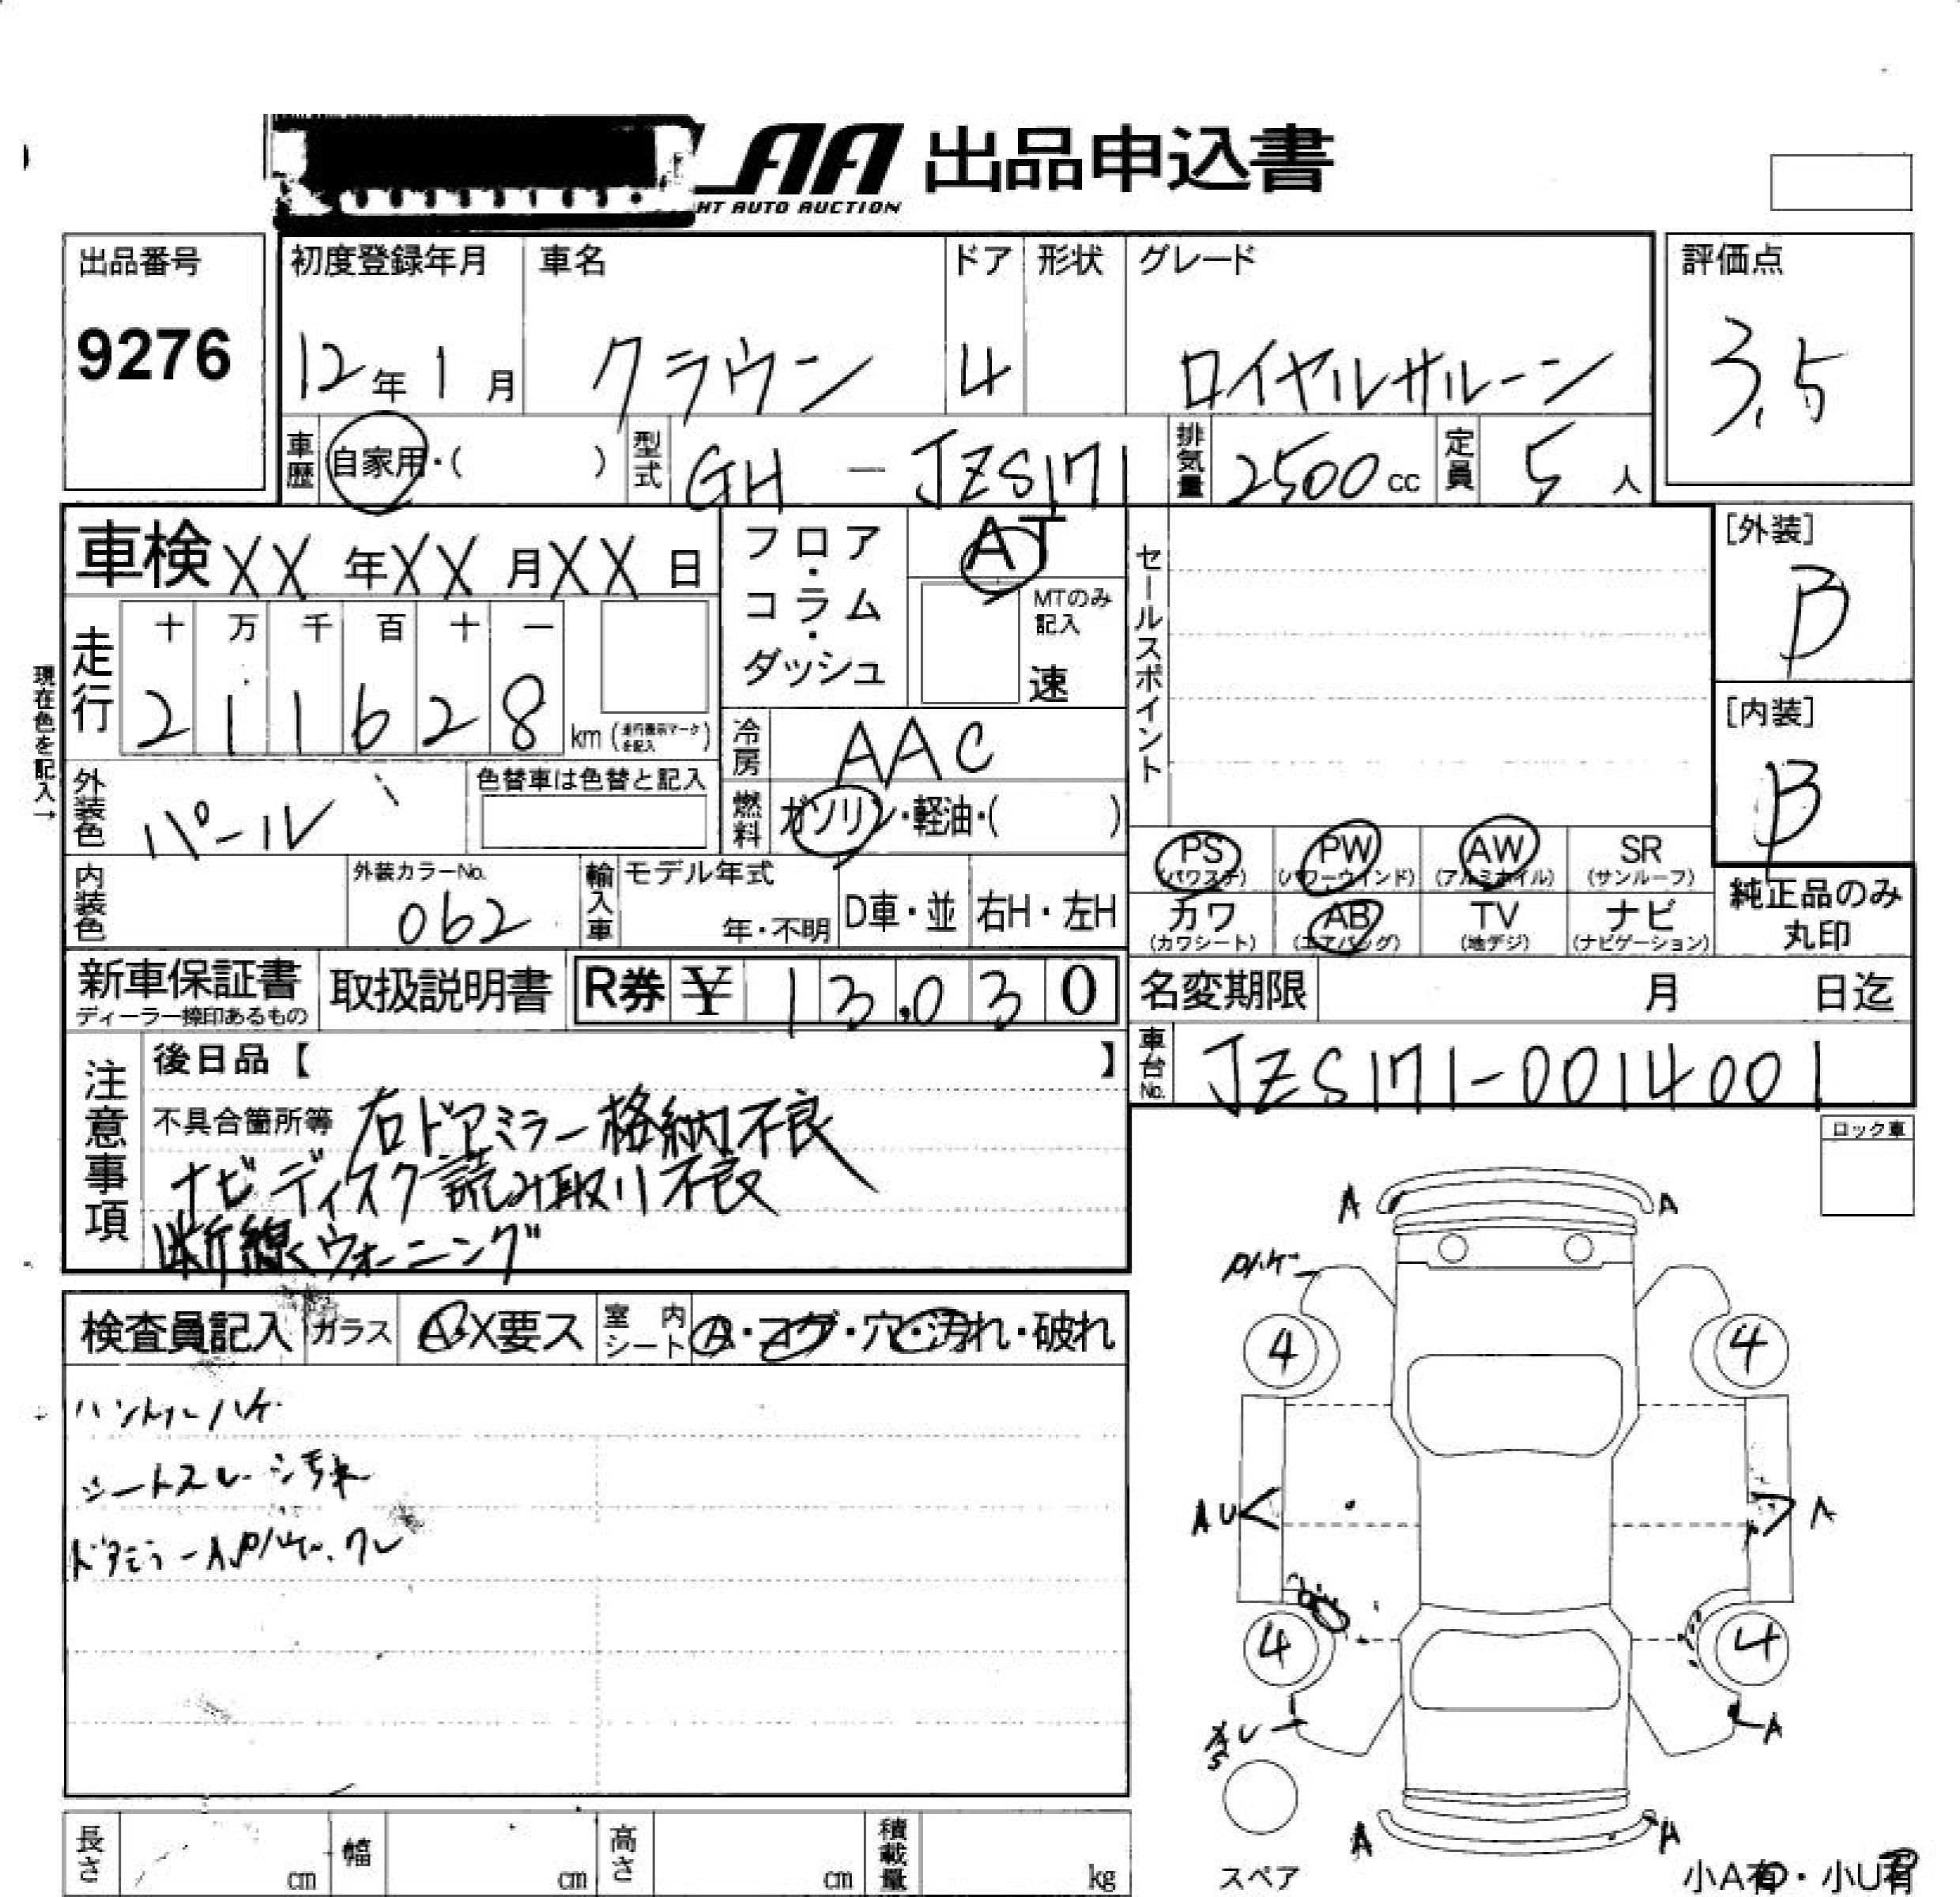 AA 出品申込書
HT AUTO AUCTION
出品番号 9276
初度登録年月 12年1月
車名 クラウン
ドア 4
形状
グレード ロイヤルサルーン
評価点 3.5
車歴 自家用・( )
型式 GH-JZS171
排気量 2500cc
定員 5人
車検 XX年XX月XX日
フロア・コラム・ダッシュ
AT
MTのみ記入
速
セールスポイント
[外装] B
[内装] B
現在色を記入→
走行 十万千百十一
211628 km
冷房 AAC
外装色 パール
色替車は色替と記入
燃料 ガソリン・軽油・( )
内装色
外装カラーNo. 062
輸入車 モデル年式 年・不明
D車・並 右H・左H
PS (パワステ) PW (パワーウインド) AW (アルミホイル) SR (サンルーフ)
カワ (カワシート) AB (エアバッグ) TV (地デジ) ナビ (ナビゲーション)
純正品のみ丸印
新車保証書
ディーラー捺印あるもの
取扱説明書
R券 ¥ 13,030
名変期限 月 日迄
車台No. JZS171-0014001
注意事項
後日品【 】
不具合箇所等 右ドアミラー格納不良
ナビディスク読み取り不良
断線ウォーニング
ロック車
検査員記入 ガラス A・X要ス 室内シート A・コゲ・穴・汚れ・破れ
ハンドルハゲ
シートスレ・シミ汚れ
ドアミラーA
A A
4 4
AU A
4 4
U A
A A
スペア
小A有・小U有
長さ cm 幅 cm 高さ cm 積載量 kg